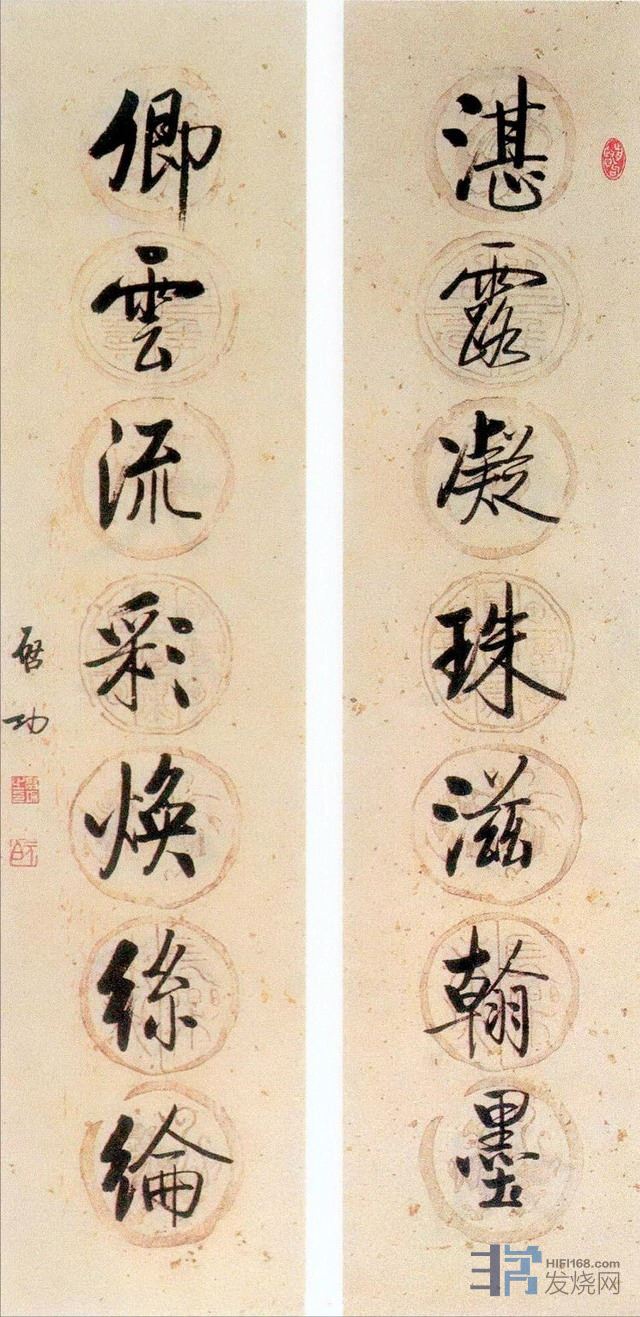 湛露凝珠滋翰墨
卿雲流彩煥絲綸
啓功
HIFI168.com
发烧网